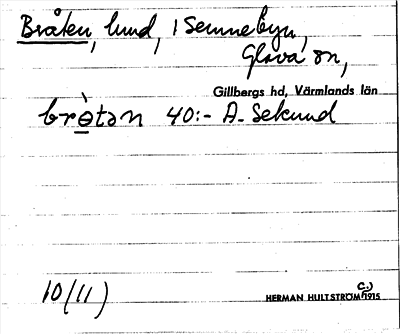 Bråten, lund, i Sennebyn,
Glava sn,
Gillbergs hd, Värmlands län
brө̀tən 40:- A. Sekund
10(11)
HERMAN HULTSTRÖM C:) 1915